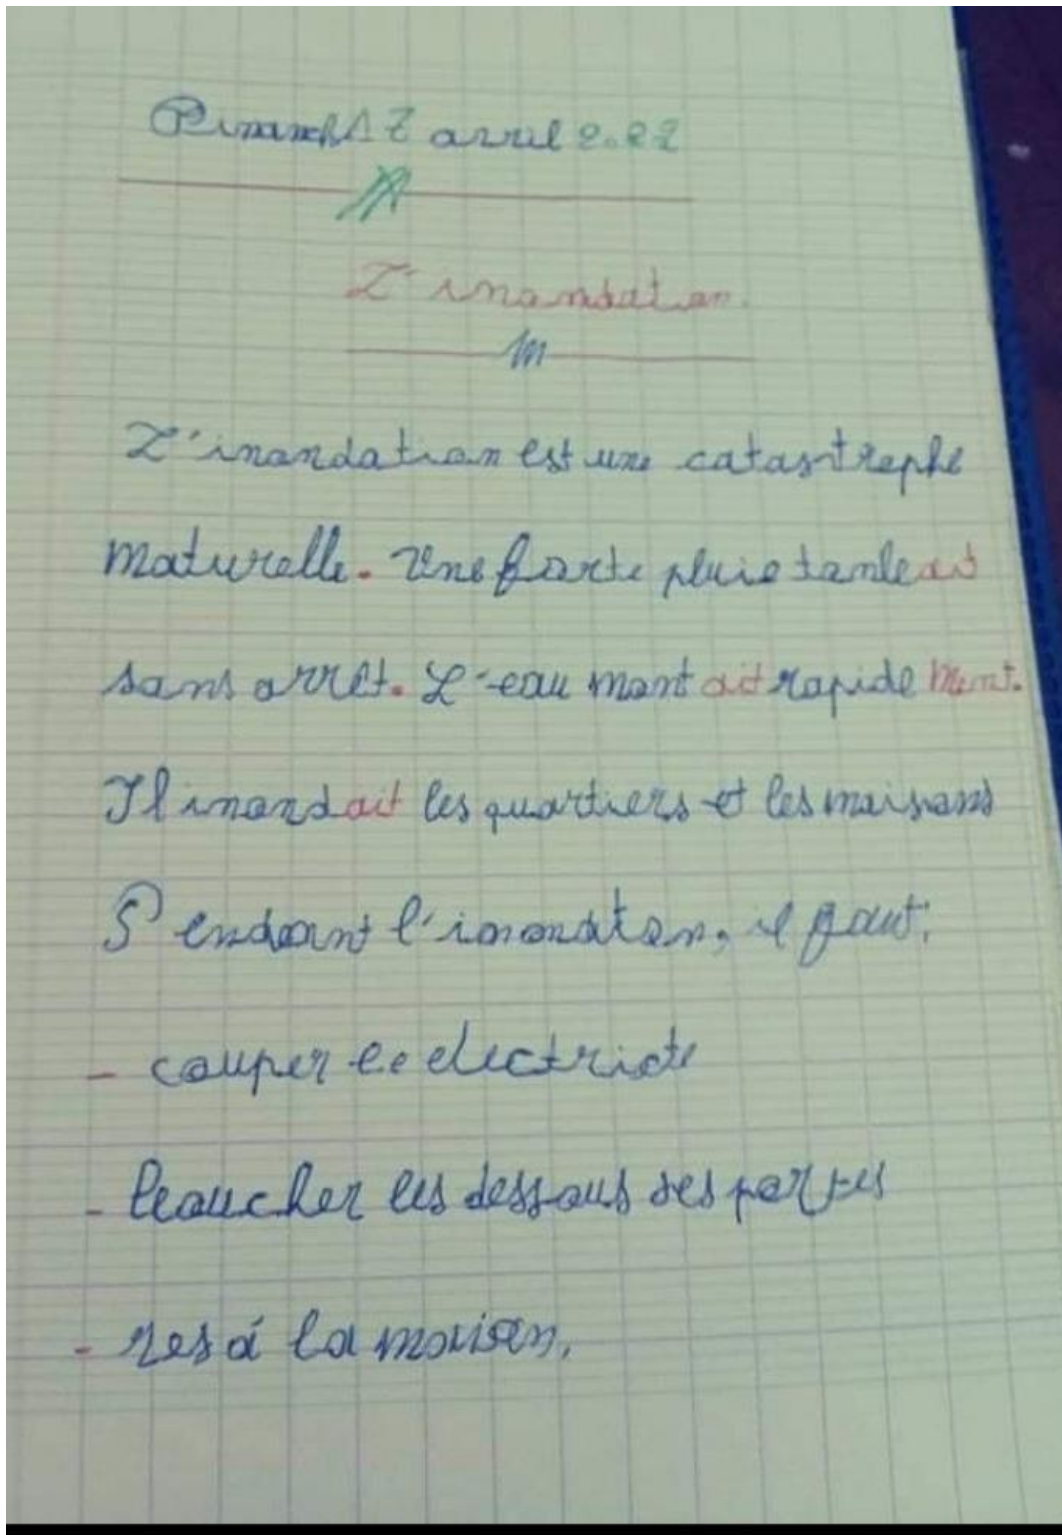 Dimanch 17 avril 2022
L'inondation
L'inondation est une catastrophe
naturelle. Une forte pluie tombait
sans arrêt. L'eau montait rapidement.
Il inondait les quartiers et les maisons
Pendant l'inondation, il faut:
- couper le electricite
- boucher les dessous des portes
- res à la maison.